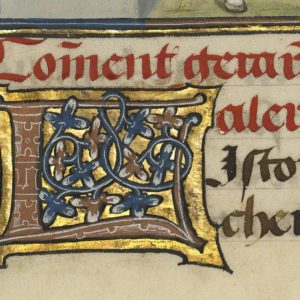 Coment gerar
aler
LIsto
cher